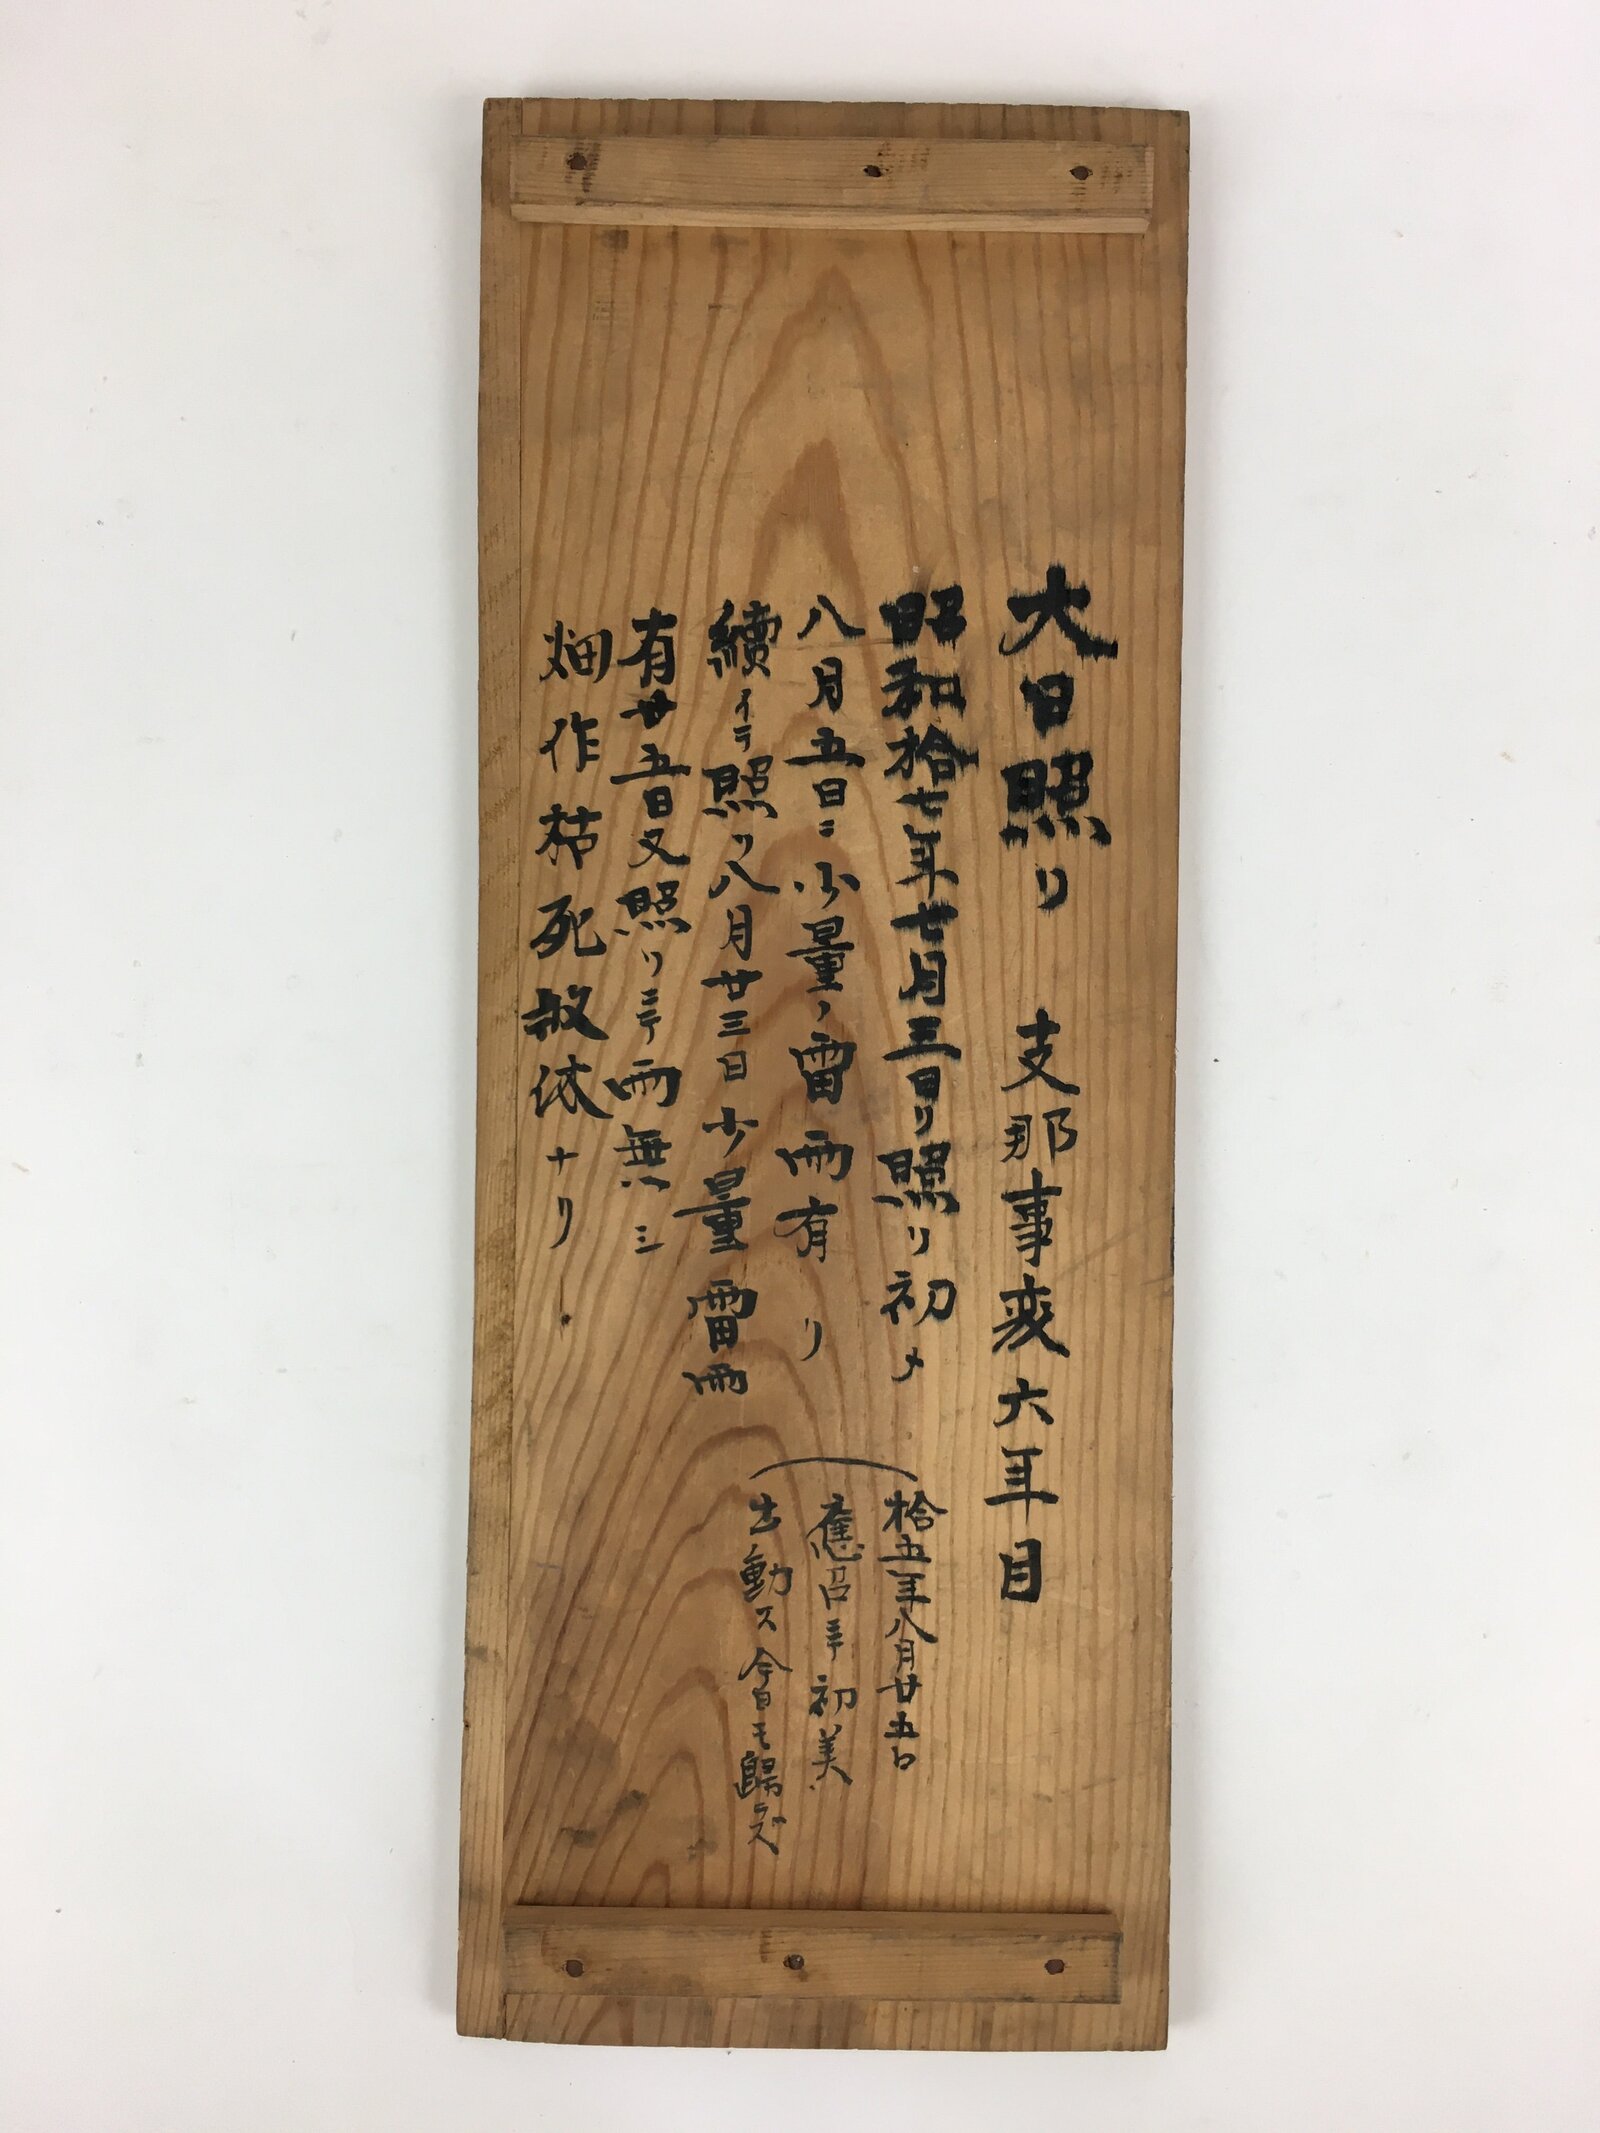 大日照り 支那事変六年目
昭和拾七年七月三日リ照リ初メ
八月五日ニ少量ノ雷雨有リ
續イテ照リ八月廿三日少量雷雨
有廿五日又照リニテ雨無シ
畑作枯死 ナリ
拾五年八月廿五日
應召ニテ初美
出動ス今日モ歸ラズ